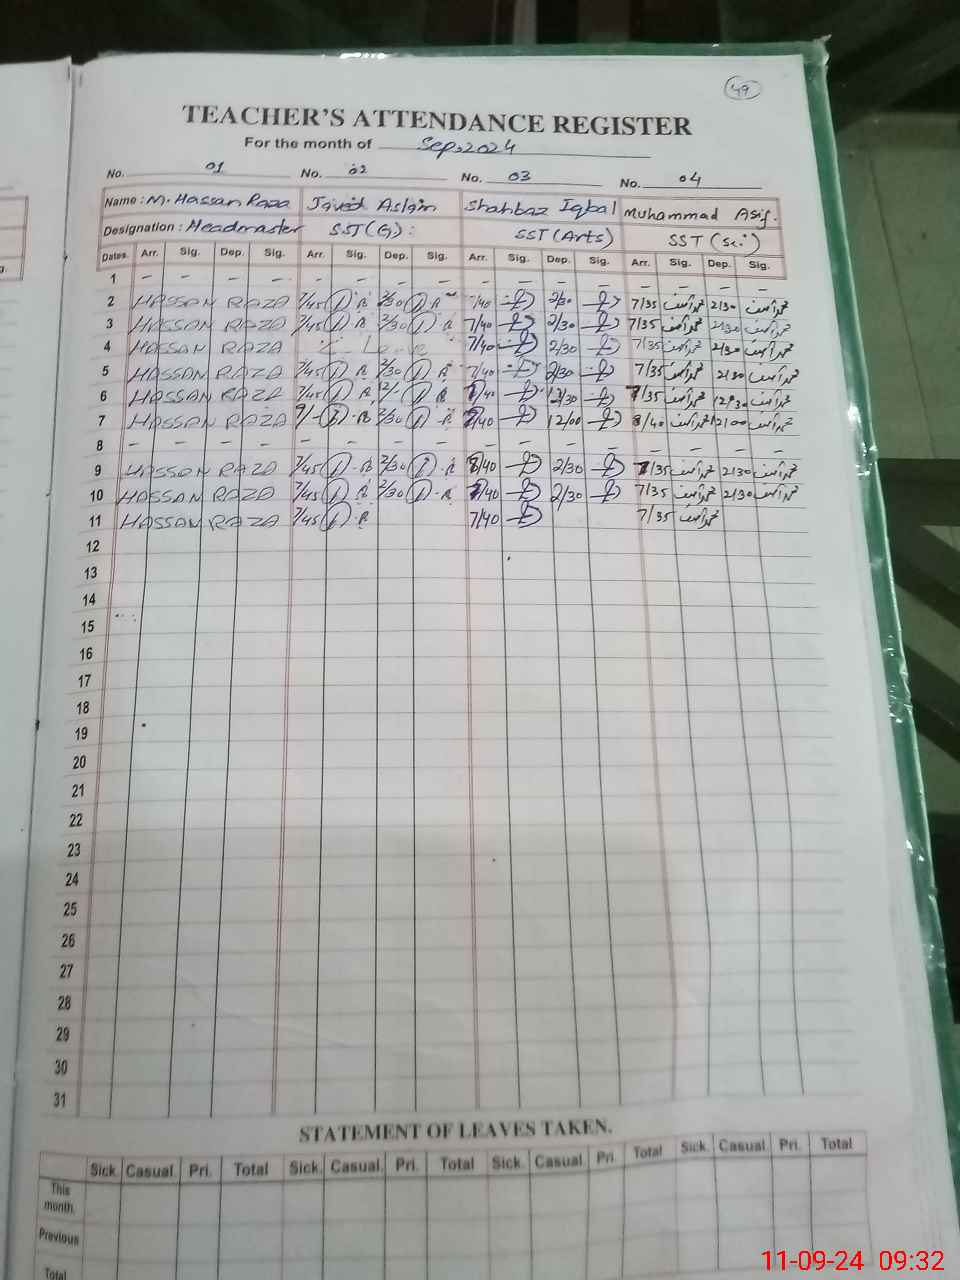 49
TEACHER'S ATTENDANCE REGISTER
For the month of Sep.2024
No. 01 No. 02 No. 03 No. 04
Name: M. Hassan Raza Javed Aslam Shahbaz Iqbal Muhammad Asif.
Designation: Headmaster SST(G): SST (Arts) SST (Sc.)
Dates. Arr. Sig. Dep. Sig. Arr. Sig. Dep. Sig. Arr. Sig. Dep. Sig. Arr. Sig. Dep. Sig.
1 - - - - - - - - - - - - - - - -
2 HASSAN RAZA 7/45 2/30 7/40 2/30 7/35 محمد آصف 2/30 محمد آصف
3 HASSAN RAZA 7/45 2/30 7/40 2/30 7/35 محمد آصف 2/30 محمد آصف
4 HASSAN RAZA Leave 7/40 2/30 7/35 محمد آصف 2/30 محمد آصف
5 HASSAN RAZA 7/45 2/30 7/40 2/30 7/35 محمد آصف 2/30 محمد آصف
6 HASSAN RAZA 7/45 12/- 7/40 12/30 7/35 محمد آصف 12/30 محمد آصف
7 HASSAN RAZA 9/- 2/30 7/40 12/00 8/40 محمد آصف 12/00 محمد آصف
8 - - - - - - - - - - - - - - - -
9 HASSAN RAZA 7/45 2/30 8/40 2/30 7/35 محمد آصف 2/30 محمد آصف
10 HASSAN RAZA 7/45 2/30 7/40 2/30 7/35 محمد آصف 2/30 محمد آصف
11 HASSAN RAZA 7/45 7/40 7/35 محمد آصف
12
13
14
15
16
17
18
19
20
21
22
23
24
25
26
27
28
29
30
31
STATEMENT OF LEAVES TAKEN.
Sick. Casual. Pri. Total Sick. Casual. Pri. Total Sick. Casual. Pri. Total Sick. Casual. Pri. Total
This month.
Previous
Total
11-09-24 09:32